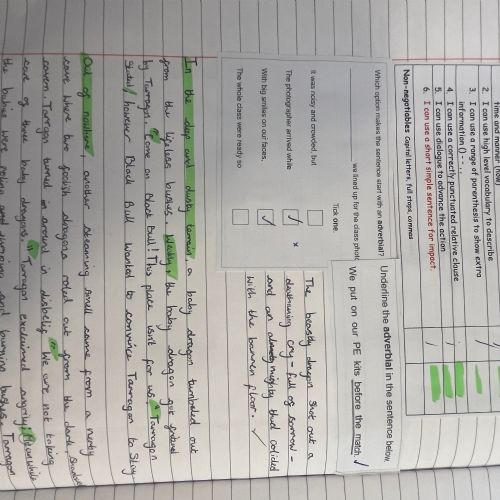 time and manner (now)
2. I can use high level vocabulary to describe
3. I can use a range of parenthesis to show extra
information () - - , ,
4. I can use a correctly punctuated relative clause
5. I can use dialogue to advance the action
6. I can use a short simple sentence for impact.
Non-negotiables Capital letters, full stops, commas
Which option makes the sentence start with an adverbial?
we lined up for the class phot
Tick one.
It was noisy and crowded, but
The photographer arrived while
With big smiles on our faces,
The whole class were ready so
Underline the adverbial in the sentence below.
We put on our PE kits before the match.
The beastly dragon shot out a
deafening cry - full of sorrow -
and an mighty thud collided
with the barren floor.
In the deep and dusty terrain, a baby dragon tumbeled out
from the lifeless bushes. Weakly, the baby dragon got
by Tarragon. "Come on Black Bull! This place isnt for us." Tarragon
however Black Bull wanted to convince Tarragon to stay
Out of nowhere, another steaming smell came from a nearby
cave where two foolish dragons rolled out from the dark,
cavern. Tarragon turned in around in disbelief. "We are not taking
care of three baby dragons," Tarragon exclaimed angrily. Meanwhile
the babies were rolling and jumping and burning bushes. Tarragon